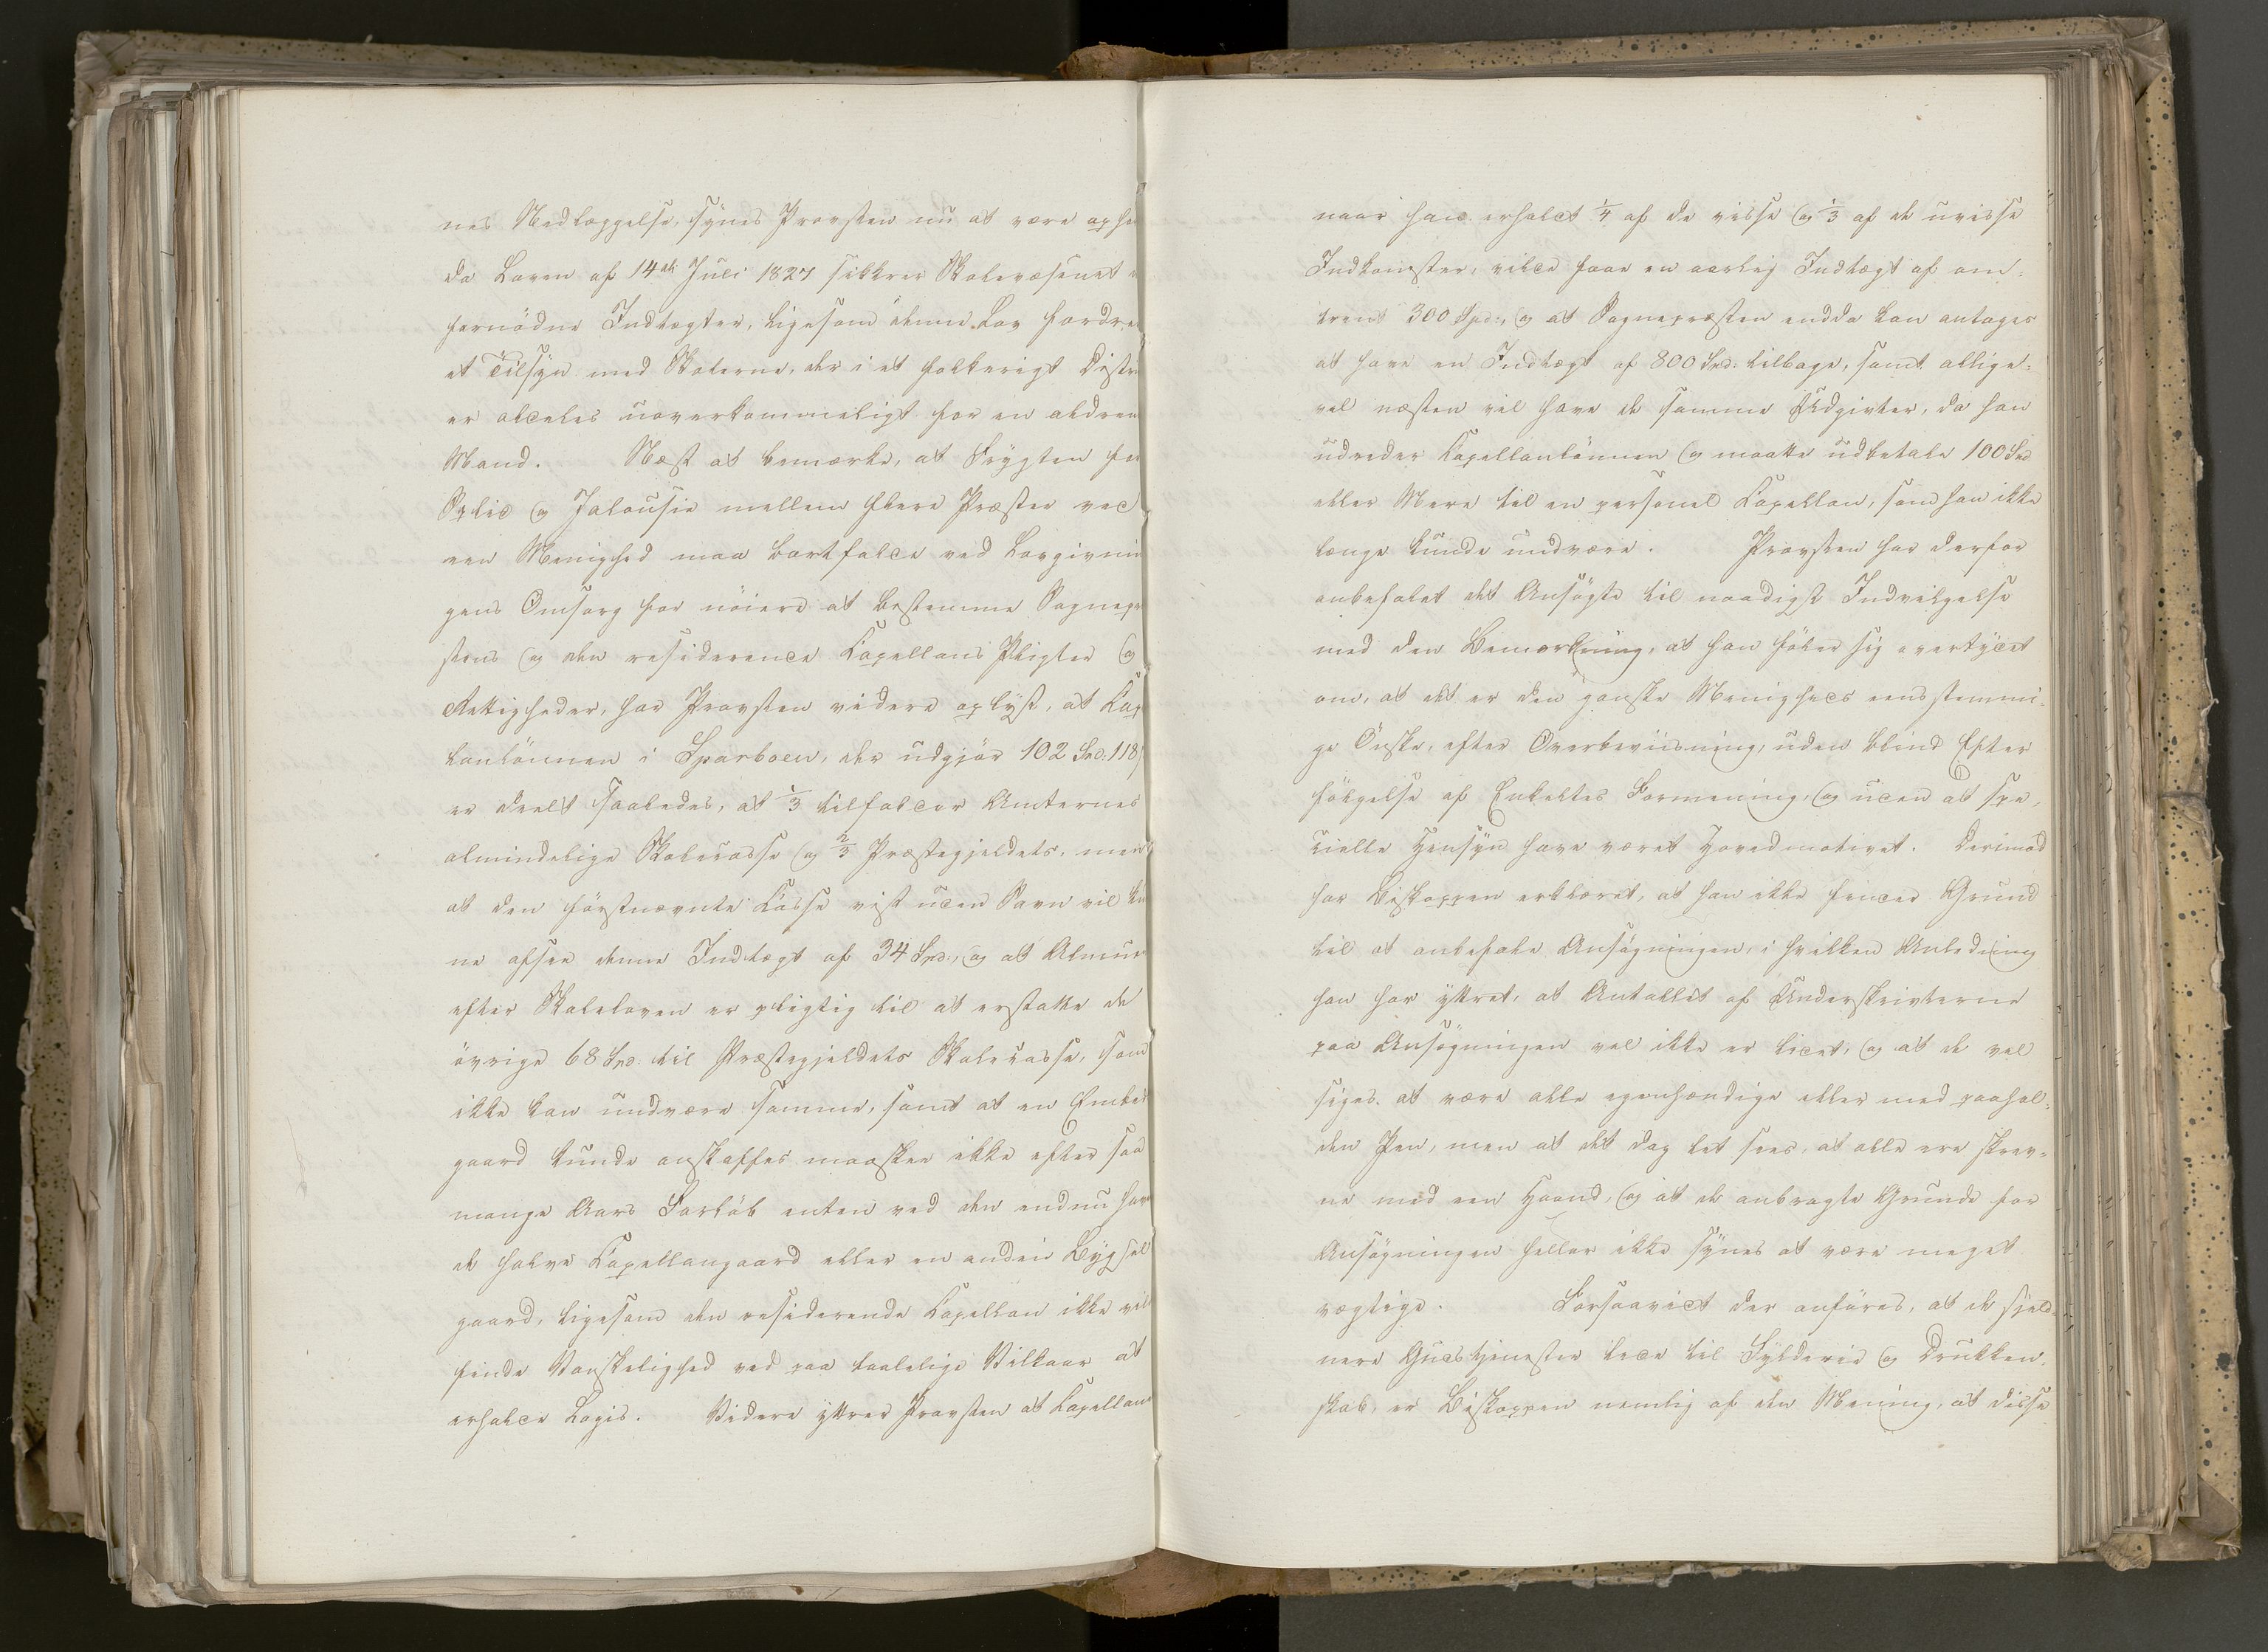 nes Nedlæggelse, synes Provsten nu at være ophæ
da Loven af 14de Juli 1827 sikkrer Skolevæsenet
fornödne Indtægter, ligesom denne Lov fordrer
et Tilsyn med Skolerne, der i et folkerigt Distri
er aldeles uoverkommeligt for en aldrende
Mand. Næst at bemærke, at Frygten for
Splid og Jalousie mellem flere Præster ved
een Menighed maa bortfalde ved Lovgivnin
gens Omsorg for nöiere at bestemme Sognepræ
stens og den residerende Capellans Pligter og
Rettigheder, har Provsten videre oplyst, at Cap
lanlönnen i Sparboen, der udgjör 102 Spd: 118
er deelt saaledes, at 1/3 tilfalder Amternes
almindelige Skolecasse og 2/3 Præstegjeldets, men
at den förstnævnte Casse vist uden Savn vil kun
ne afsee denne Indtægt af 34 Spd:, og at Almuen
efter Skoleloven er pligtig til at erstatte de
övrige 68 Spd: til Præstegjeldets Skolecasse, som
ikke kan undvære samme, samt at en Embeds
gaard kunde anskaffes maaskee ikke efter saa
mange Aars Forlöb enten ved den endnu hav
de halve Capellangaard eller en anden Bygsel
gaard, ligesom den residerende Capellan ikke vil
finde Vanskelighed ved paa taalelige Vilkaar at
erholde Logis. Videre yttrer Provsten at Capellanen
naar han erholdt 1/4 af de visse og 1/3 af de uvisse
Indkomster, vilde faae en aarlig Indtægt af om-
trent 300 Spd:, og at Sognepræsten endda kan antages
at have en Indtægt af 800 Spd: tilbage, samt allige-
vel næsten vil have de samme Udgivter, da han
udreder Capellanlönnen og maatte udbetale 100 Spd
eller Mere til en personel Capellan, som han ikke
længe kunde undvære. Provsten har derfor
anbefalet det Ansögte til naadigst Indvilgelse
med den Bemærkning, at han föler sig overtydet
om, at det er den ganske Menigheds eensstemmi-
ge Önske, efter Overbeviisning, uden blind Efter
fölgelse af Enkeltes Formening, og uden at spe-
cielle Hensyn have været Hovedmotivet. Derimod
har Biskoppen erklæret, at han ikke finder Grund
til at anbefale Ansögningen, i hvilken Anledning
han har yttret, at Antallet af Underskrivterne
paa Ansögningen vel ikke er lidet, og at de vel
siges at være alle egenhændige eller med paahol-
den Pen, men at det dog let sees, at alle ere skrev-
ne med een Haand, og at de anbragte Grunde for
Ansögningen heller ikke synes at være meget
vægtige. Forsaavidt der anföres, at de sjeld-
nere Gudstjenester lede til Fylderie og Drukken-
skab, er Biskoppen nemlig af den Mening, at disse